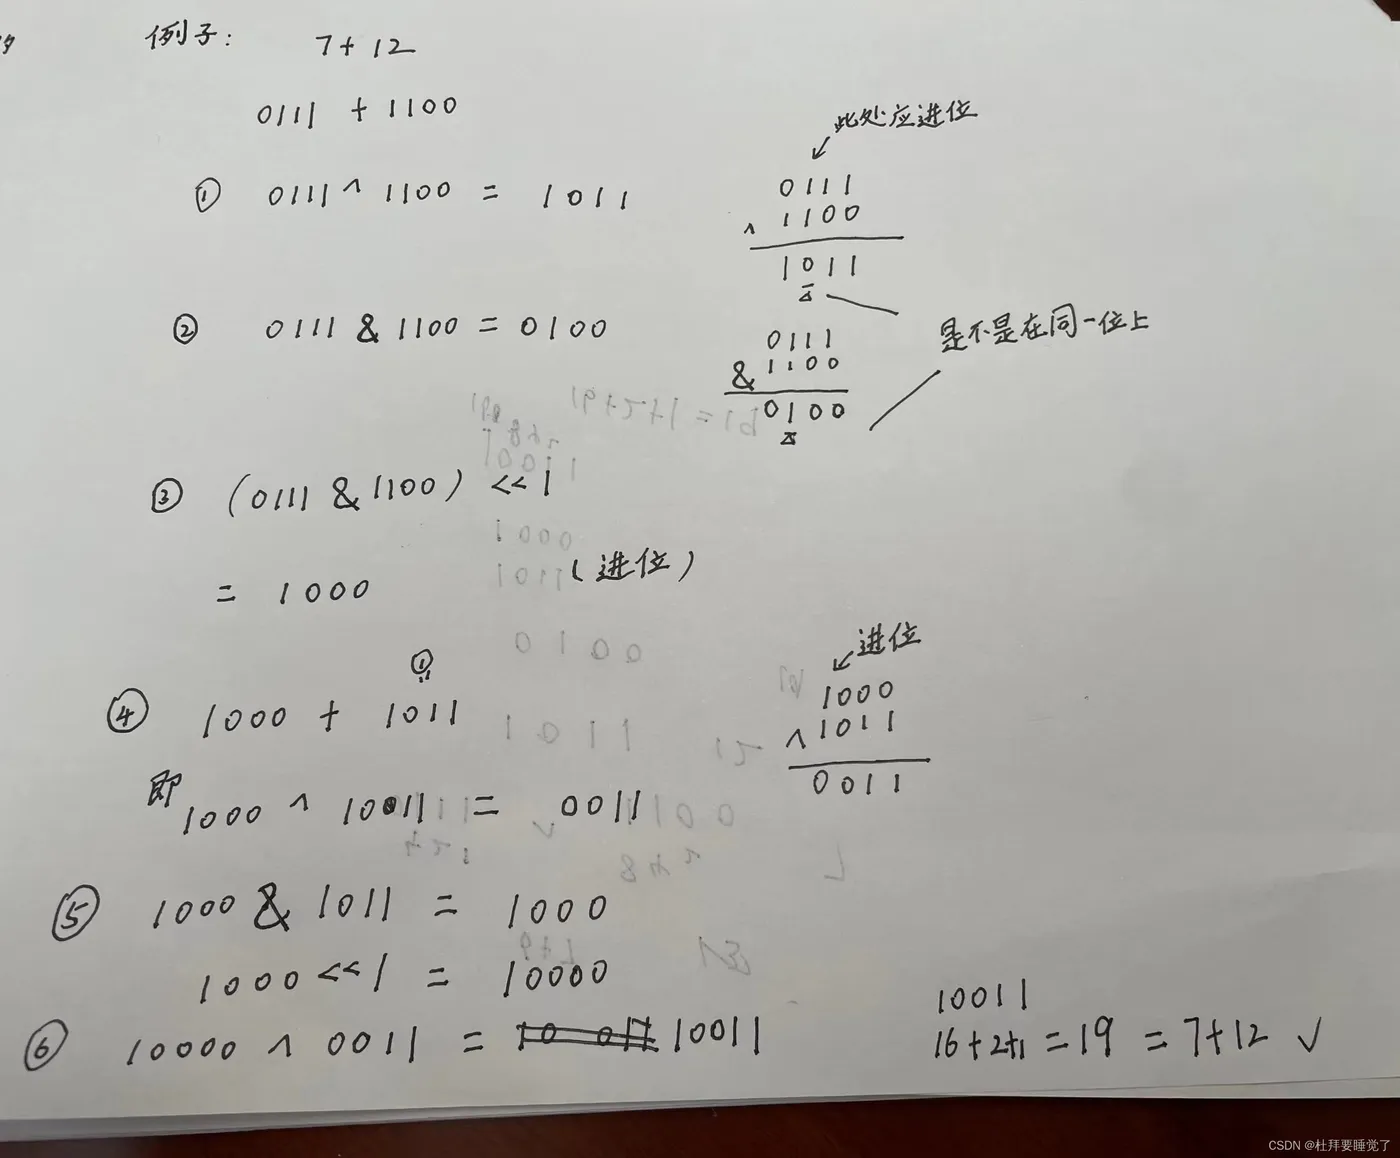 例子: 7+12
0111 + 1100
此处应进位
① 0111 ^ 1100 = 1011
0111
^ 1100
1011
② 0111 & 1100 = 0100
0111
& 1100
0100
是不是在同一位上
③ (0111 & 1100) << 1
= 1000 (进位)
①
④ 1000 + 1011
进位
1000
^ 1011
0011
即 1000 ^ 10011 = 0011
⑤ 1000 & 1011 = 1000
1000 << 1 = 10000
⑥ 10000 ^ 0011 = 10011
10011
16+2+1 = 19 = 7+12 ✓
CSDN @杜拜要睡觉了